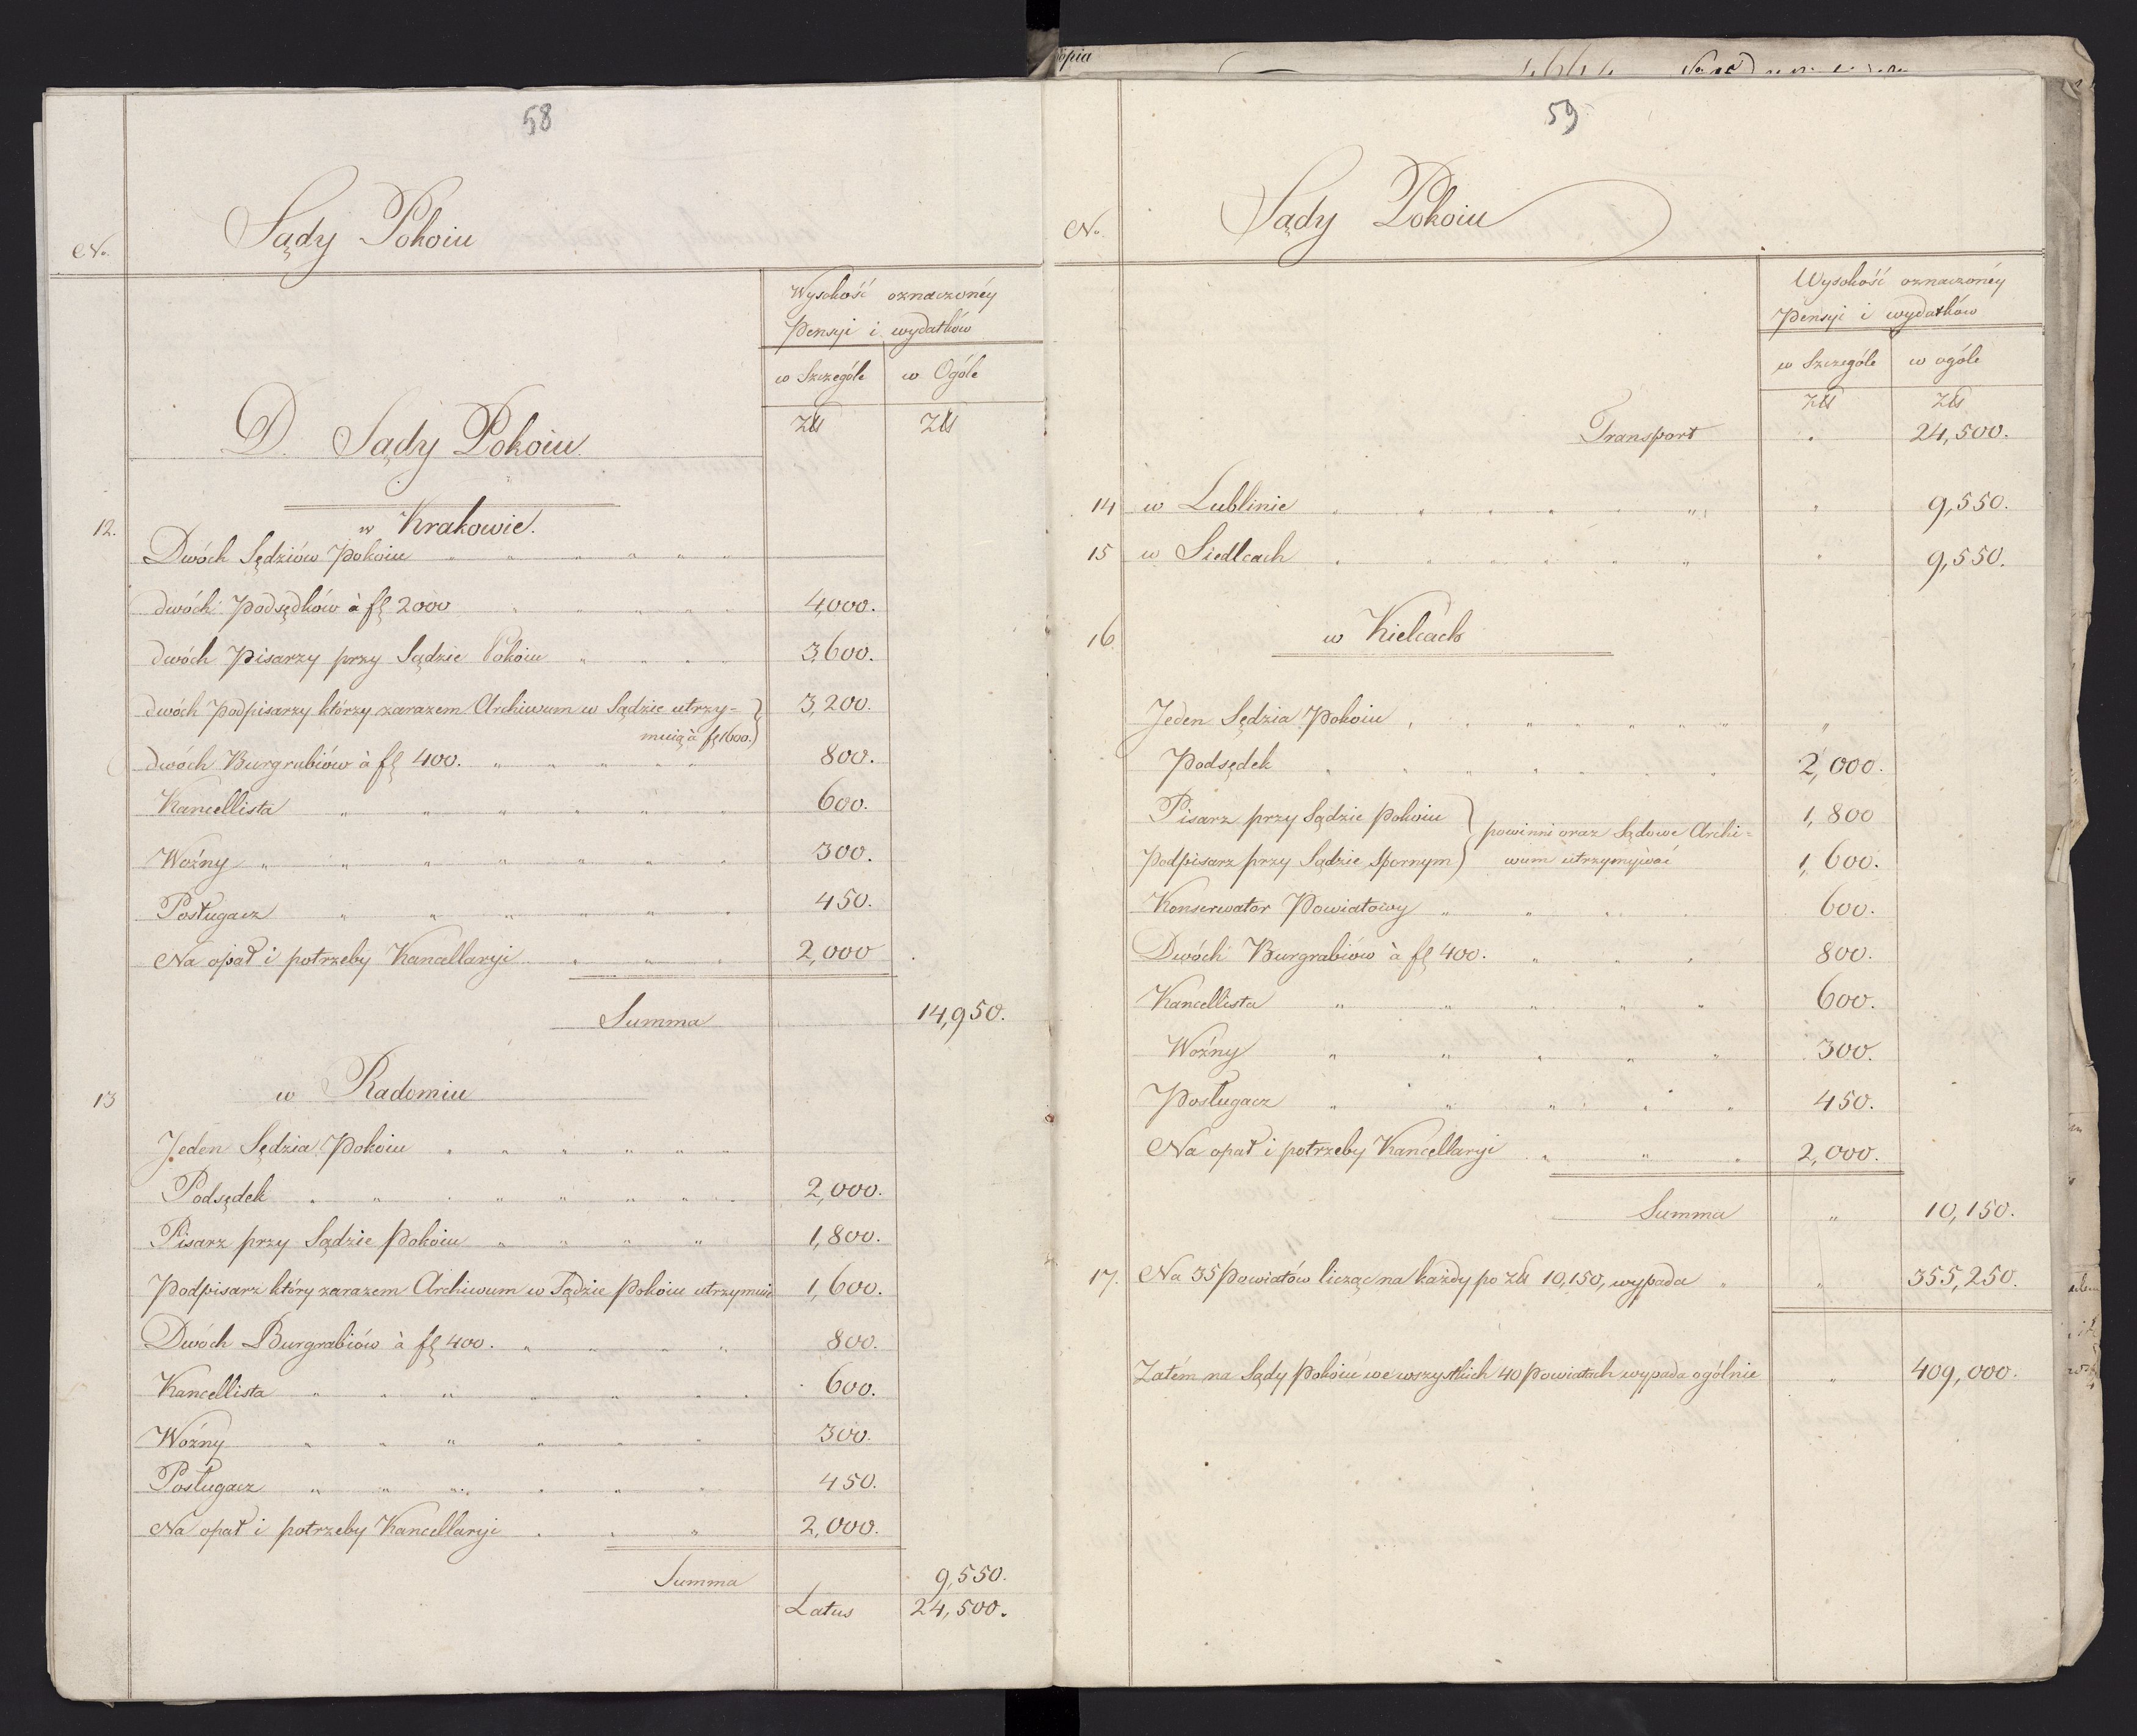 58
Sądy Pokoiu
No.
Wysokość oznaczonéy
Pensyi i wydatków
w Szczególe w Ogóle
Złł Złł
D. Sądy Pokoiu.
12. w Krakowie.
Dwóch Sędziów Pokoiu
dwóch Podsędków à fl 2000 4,000.
dwóch Pisarzy przy Sądzie Pokoiu 3,600.
dwóch Podpisarzy którzy zarazem Archiwum w Sądzie utrzy= 3,200.
muią à fl 1600.
dwóch Burgrabiów à fl 400. 800.
Kancellista 600.
Woźny 300.
Posługacz 450.
Na opał i potrzeby Kancellaryi 2,000
Summa 14,950.
13 w Radomiu
Jeden Sędzia Pokoiu
Podsędek 2,000.
Pisarz przy Sądzie Pokoiu 1,800.
Podpisarz który zarazem Archiwum w Sądzie Pokoiu utrzymuie 1,600.
Dwóch Burgrabiów à fl 400. 800.
Kancellista 600.
Woźny 300.
Posługacz 450.
Na opał i potrzeby Kancellaryi 2,000.
Summa 9,550.
Latus 24,500.
59
Sądy Pokoiu
No.
Wysokość oznaczonéy
Pensyi i wydatków
w Szczególe w ogóle
Złł Złł
Transport 24,500.
14 w Lublinie 9,550.
15 w Siedlcach 9,550.
16 w Kielcach
Jeden Sędzia Pokoiu
Podsędek 2,000.
Pisarz przy Sądzie Pokoiu powinni oraz Sądowe Archi= 1,800
Podpisarz przy Sądzie Spornym wum utrzymywać 1,600.
Konserwator Powiatowy 600.
Dwóch Burgrabiów à fl 400. 800.
Kancellista 600.
Woźny 300.
Posługacz 450.
Na opał i potrzeby Kancellaryi 2,000.
Summa 10,150.
17. Na 35 Powiatów licząc na każdy po Złł 10,150, wypada 355,250.
Zatém na Sądy Pokoiu we wszystkich 40 Powiatach wypada ogólnie 409,000.